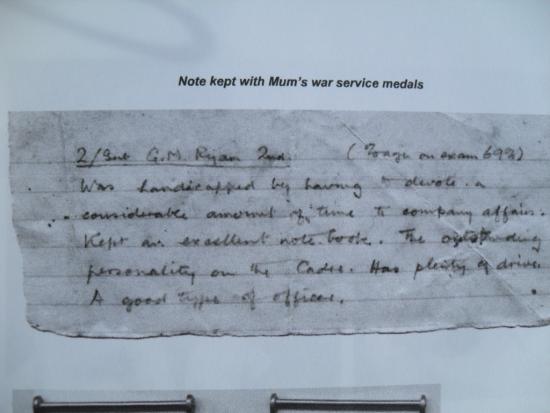 Note kept with Mum's war service medals
2/Sub G.M. Ryan 2nd. ( on exam 69%)
Was handicapped by having to devote a
considerable amount of time to company affairs.
Kept an excellent note book. The outstanding
personality on the Cadre. Has plenty of drive.
A good type of officer.